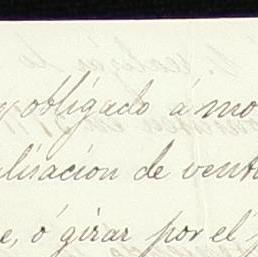 obligado á mo
lisacion de vent
e, ó girar por el